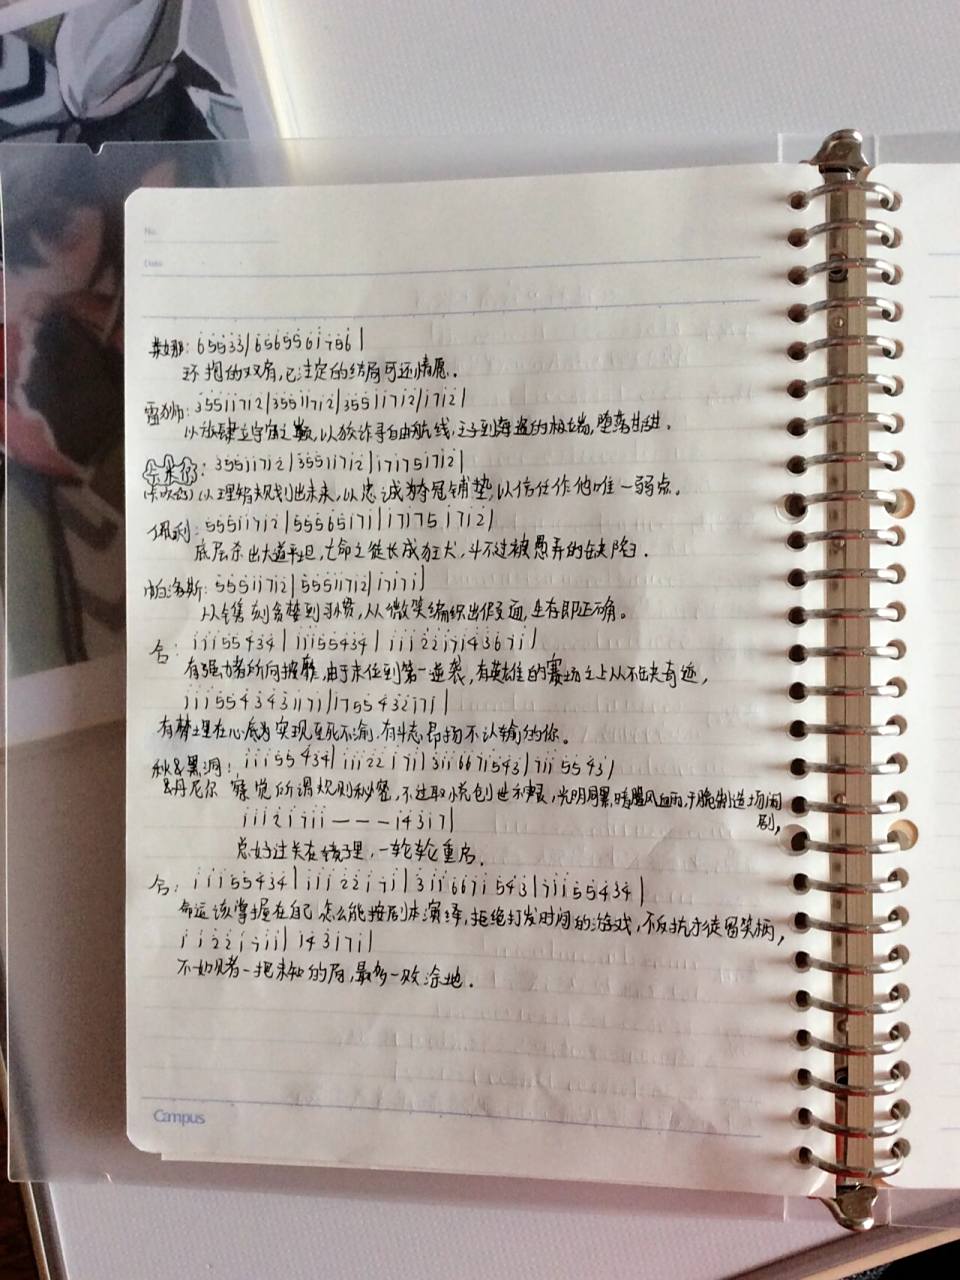 No.
Date
莱娜: 65533/6565561756|
环抱的双肩,已注定的结局可还情愿.
雷狮: 35511712|35511712|35511712|1712|
以放肆立宇宙之巅,以狡诈寻自由航线,王子到海盗的极端,堕落甘甜.
卡米尔: 35511712|35511712|171751712|
以理智规划出未来,以忠诚为夺冠铺垫,以信任作他唯一弱点.
佩利: 55511712|55565171|17175 1712|
底层杀出大道平坦,亡命之徒长成狂犬,斗不过被愚弄的缺陷.
帕洛斯: 55511712|55511712|17171|
从镌刻贪婪到习惯,从微笑编织出假面,生存即正确。
合: 11155434|11155434|1112217143671|
有强者所向披靡,由于末位到第一逆袭,有英雄的赛场之上从不缺奇迹,
1115543431171|1755432171|
有梦埋在心底为实现至死不渝,有斗志昂扬不认输的你。
秋&黑洞: 11155434|11122171|31166715431|711 5543|
&丹尼尔 察觉所谓规则秘密,不过取悦创世神眼,光明同黑暗腥风血雨,干脆制造一场闹剧,
11121711———14317|
总好过关在镜子里,一轮轮重启.
合: 11155434|11122171|3116671543|711155434|
命运该掌握在自己怎么能按剧本演绎,拒绝打发时间的游戏,不反抗才徒留笑柄,
11221711|143171|
不如见着一把未知的局,最多一败涂地.
Campus